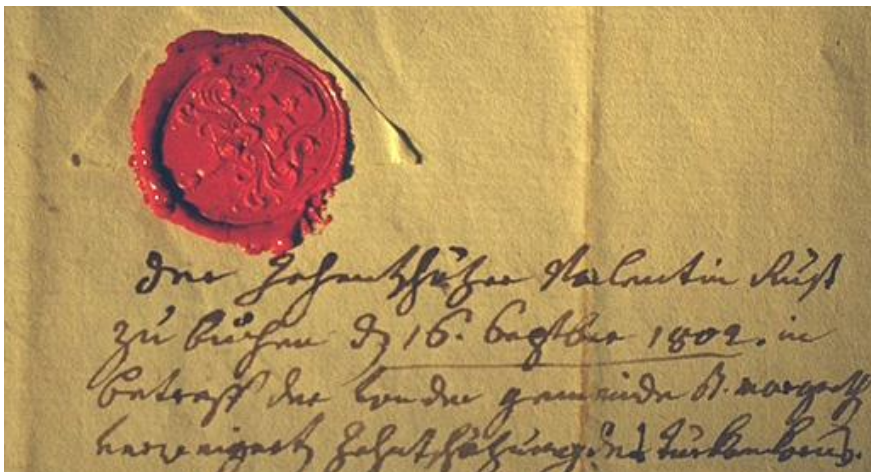 der Zehentschäzer Valentin Ruß
zu buchen dz 16. Septber 1802. in
betreff der von der gemeinde St. margreth
verweigert Zehentschäzung des Türkenkorns.